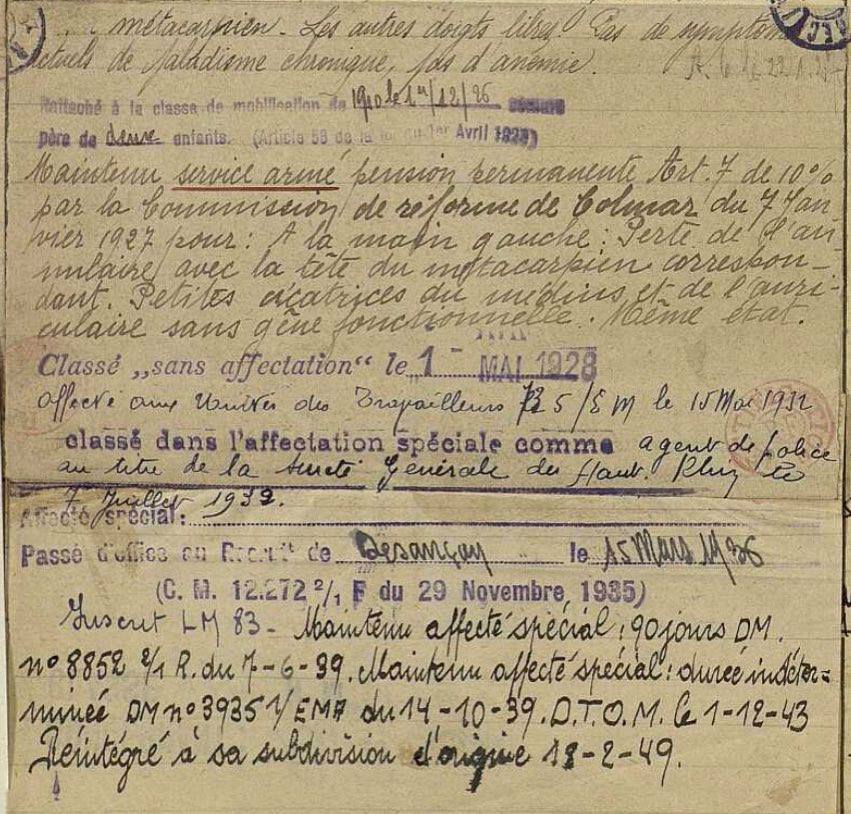 métacarpien. Les autres doigts libres. Pas de symptomes
actuels de paludisme chronique, pas d'anémie.
Rattaché à la classe de mobilisation de 1910 le 1er/12/26 comme
père de deux enfants. (Article 58 de la loi du 1er Avril 1923)
Maintenu service armé pension permanente Art. 7 de 10%
par la Commission de réforme de Colmar du 7 Jan-
vier 1927 pour : A la main gauche : Perte de l'an-
nulaire avec la tête du métacarpien correspon-
dant. Petites cicatrices du médius et de l'auri-
culaire sans gêne fonctionnelle. Même état.
Classé „sans affectation“ le 1 - MAI 1928
affecté aux Unités des Travailleurs 5/EM le 15 Mai 1932
classé dans l'affectation spéciale comme agent de police
au titre de la Sureté Générale du Haut. Rhin le
7 Juillet 1932.
Affecté spécial :
Passé d'office au Recrut de Besançon le 15 Mars 1936
(C. M. 12.272 2/1 F du 29 Novembre 1935)
Inscrit LM 83 - Maintenu affecté spécial : 90 jours DM.
n° 8852 2/1 R. du 7-6-39. Maintenu affecté spécial : durée indéter=
minée DM n° 3935 1/EMA du 14-10-39. D.T.O.M. le 1-12-43
Réintégré à sa subdivision d'origine 18-2-49.